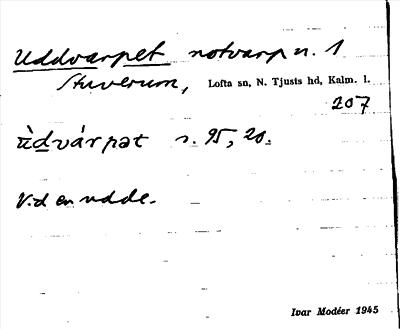 Uddvarpet notvarp n. 1
Stuverum, Lofta sn, N. Tjusts hd, Kalm. l.
207
ùdvárpət s. 95, 20.
V.d en udde.
Ivar Modéer 1945